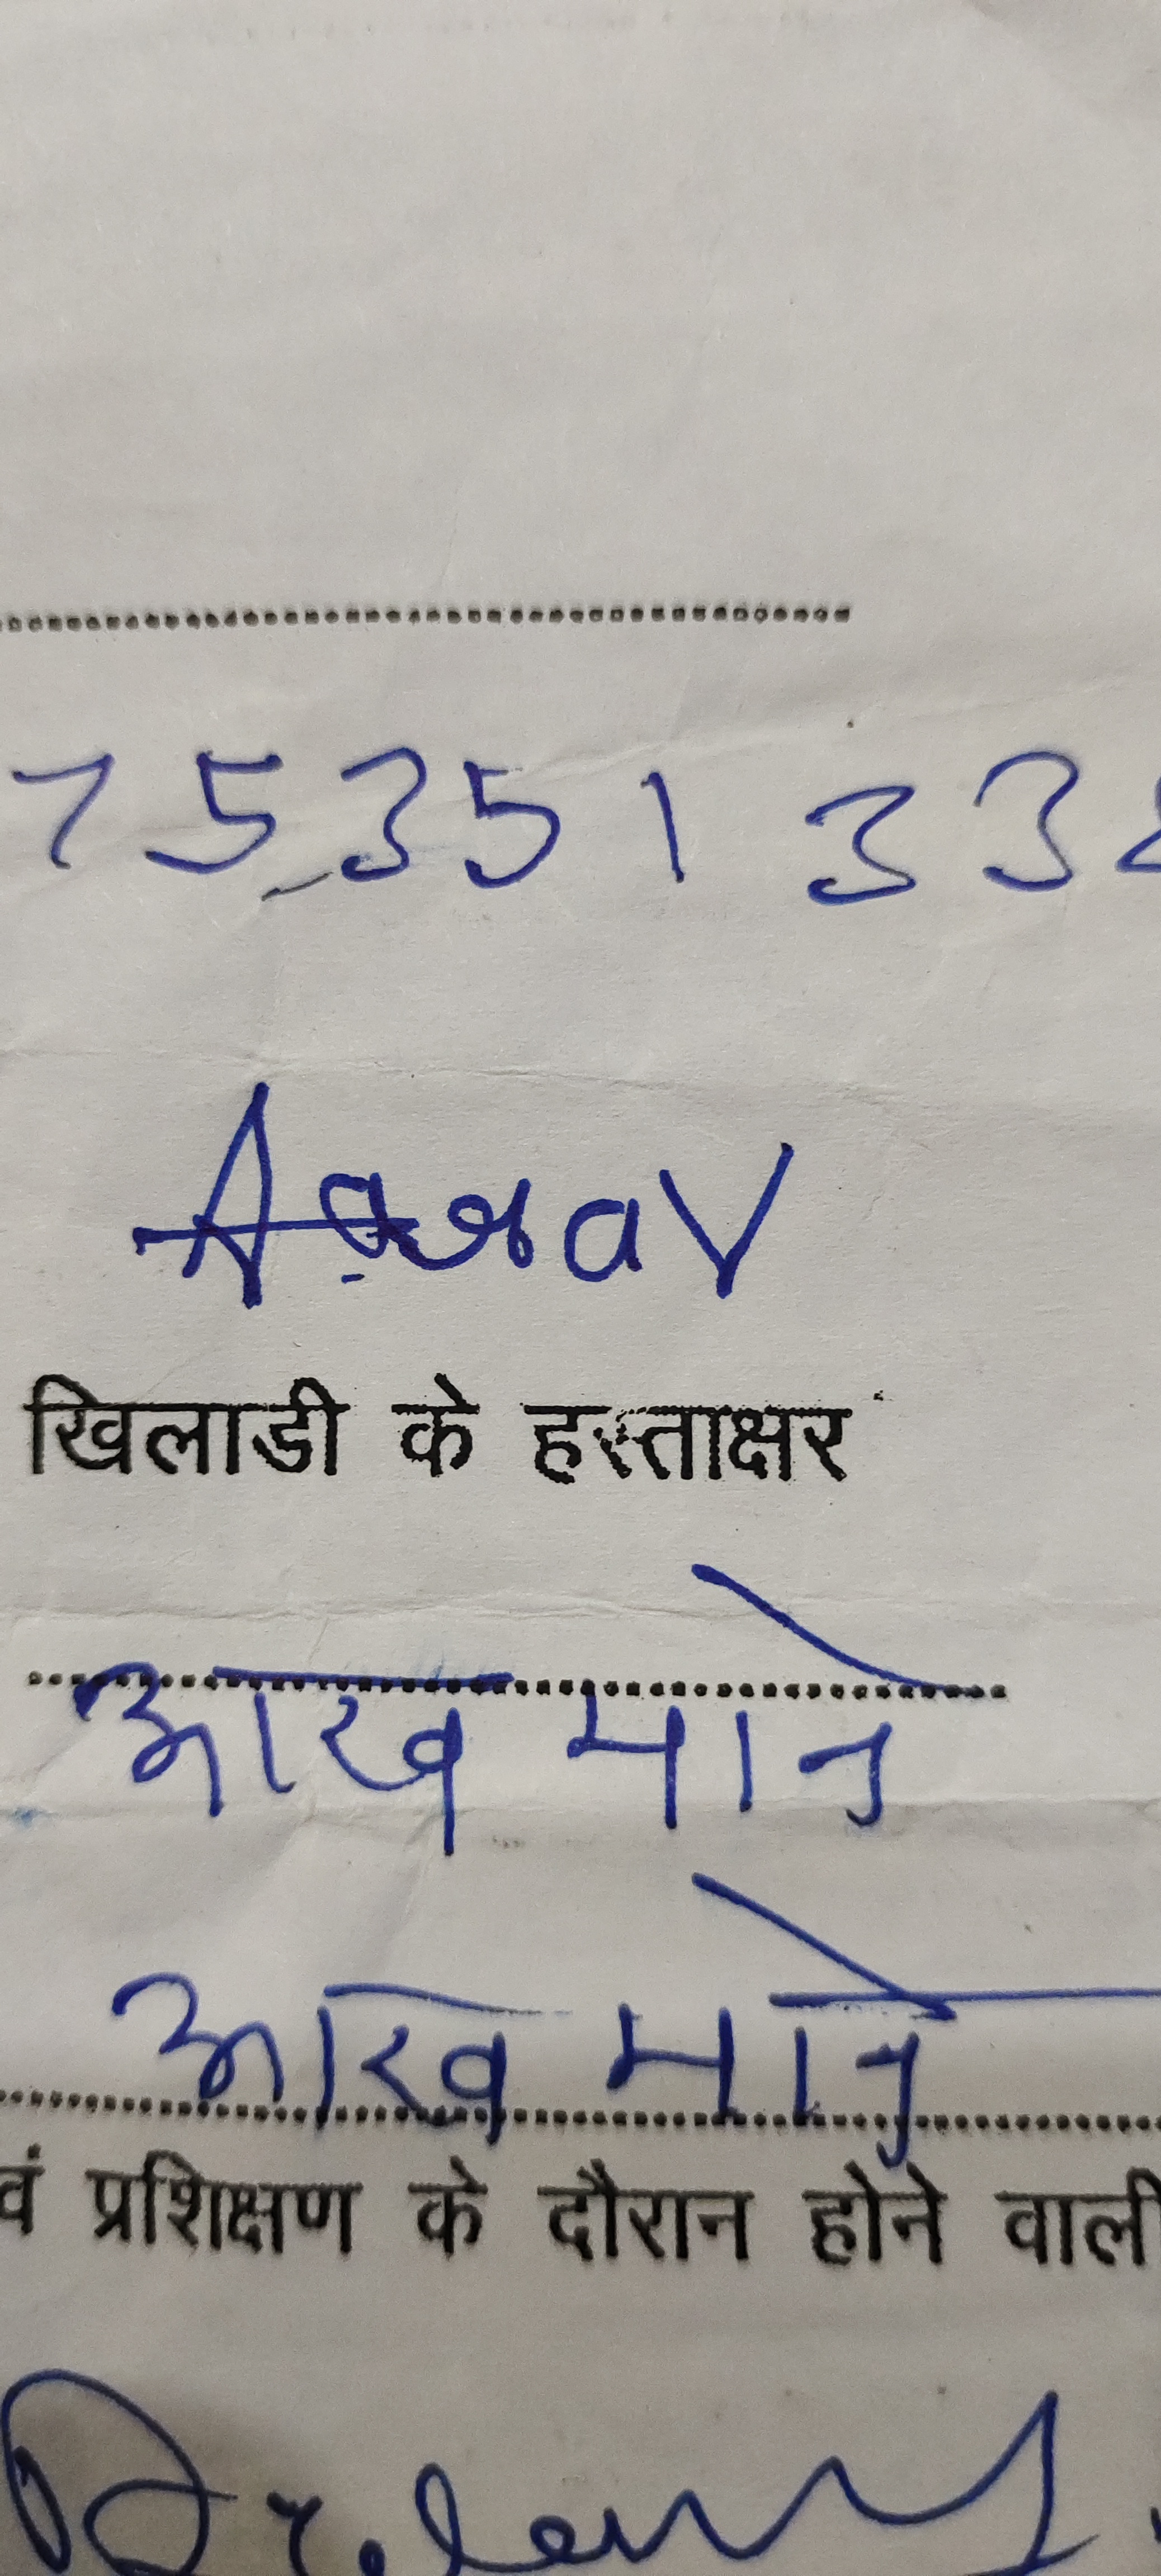 7535133
Aarav
खिलाडी के हस्ताक्षर
आरव माने
आरव माने
वं प्रशिक्षण के दौरान होने वाली